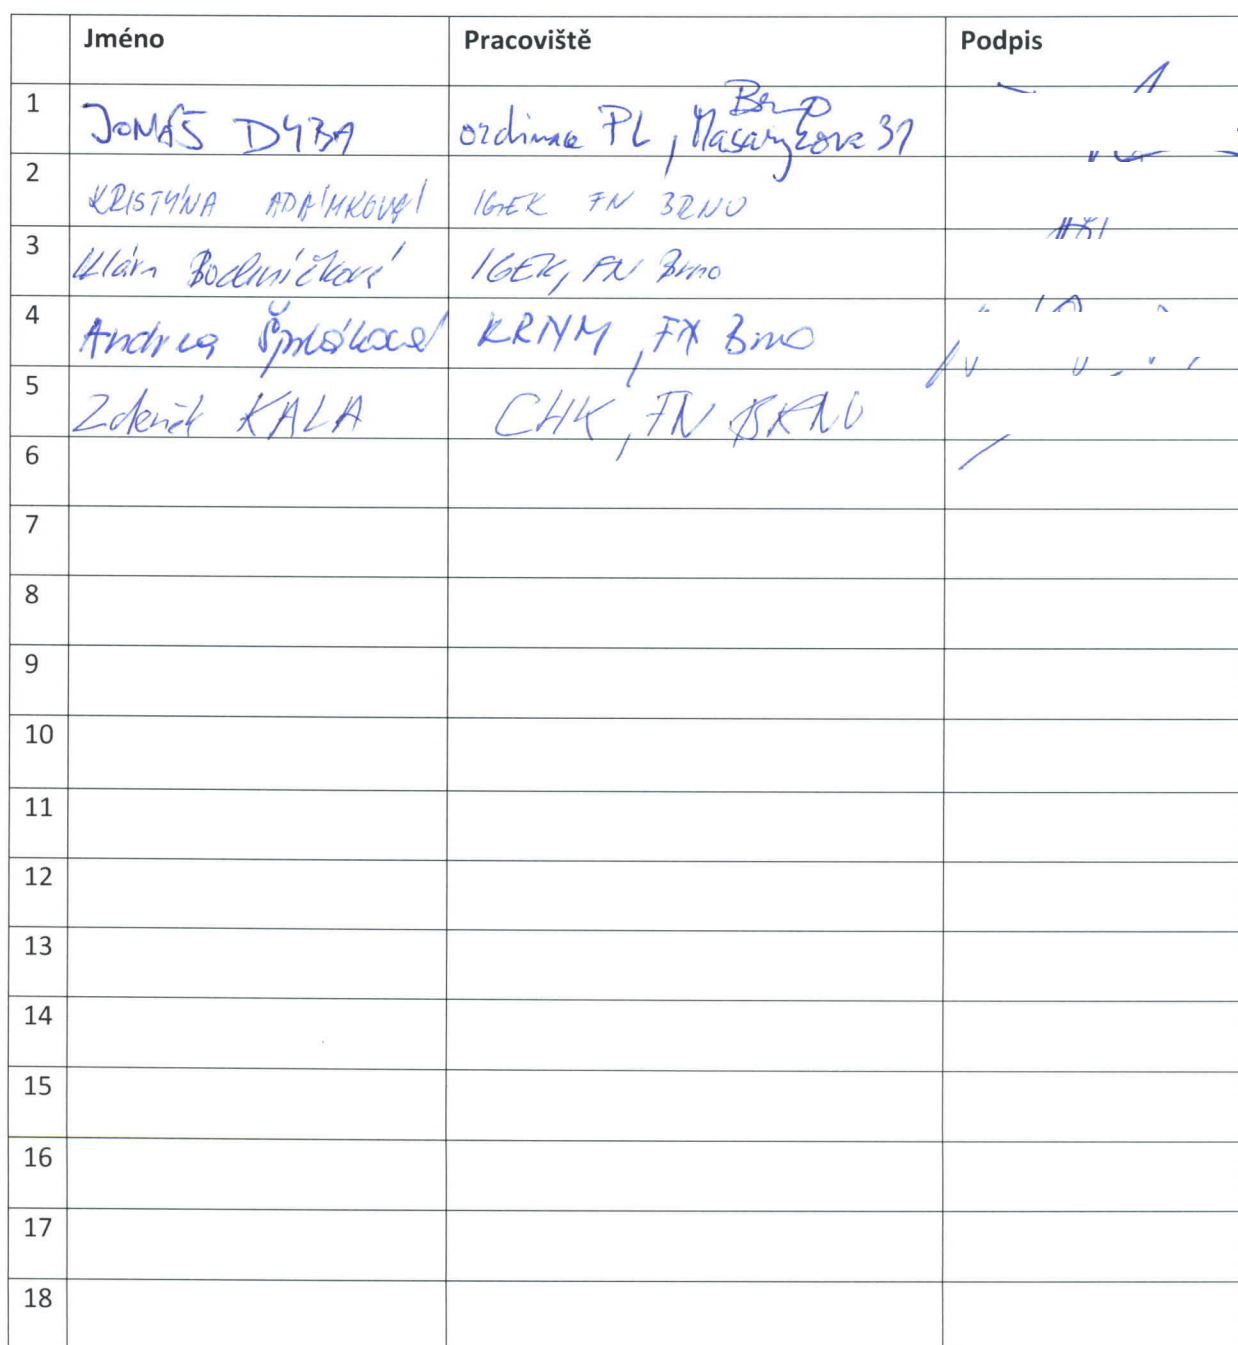 Jméno Pracoviště Podpis
1 JONÁŠ DYBA ordinace PL, Masarykova 31 Brno
2 KRISTÝNA ADÁMKOVÁ IGEK FN BRNO
3 Klára Bochníčková IGEK, FN Brno
4 Andrea KRNM, FN Brno
5 Zdeněk KALA CHK, FN BRNO
6
7
8
9
10
11
12
13
14
15
16
17
18